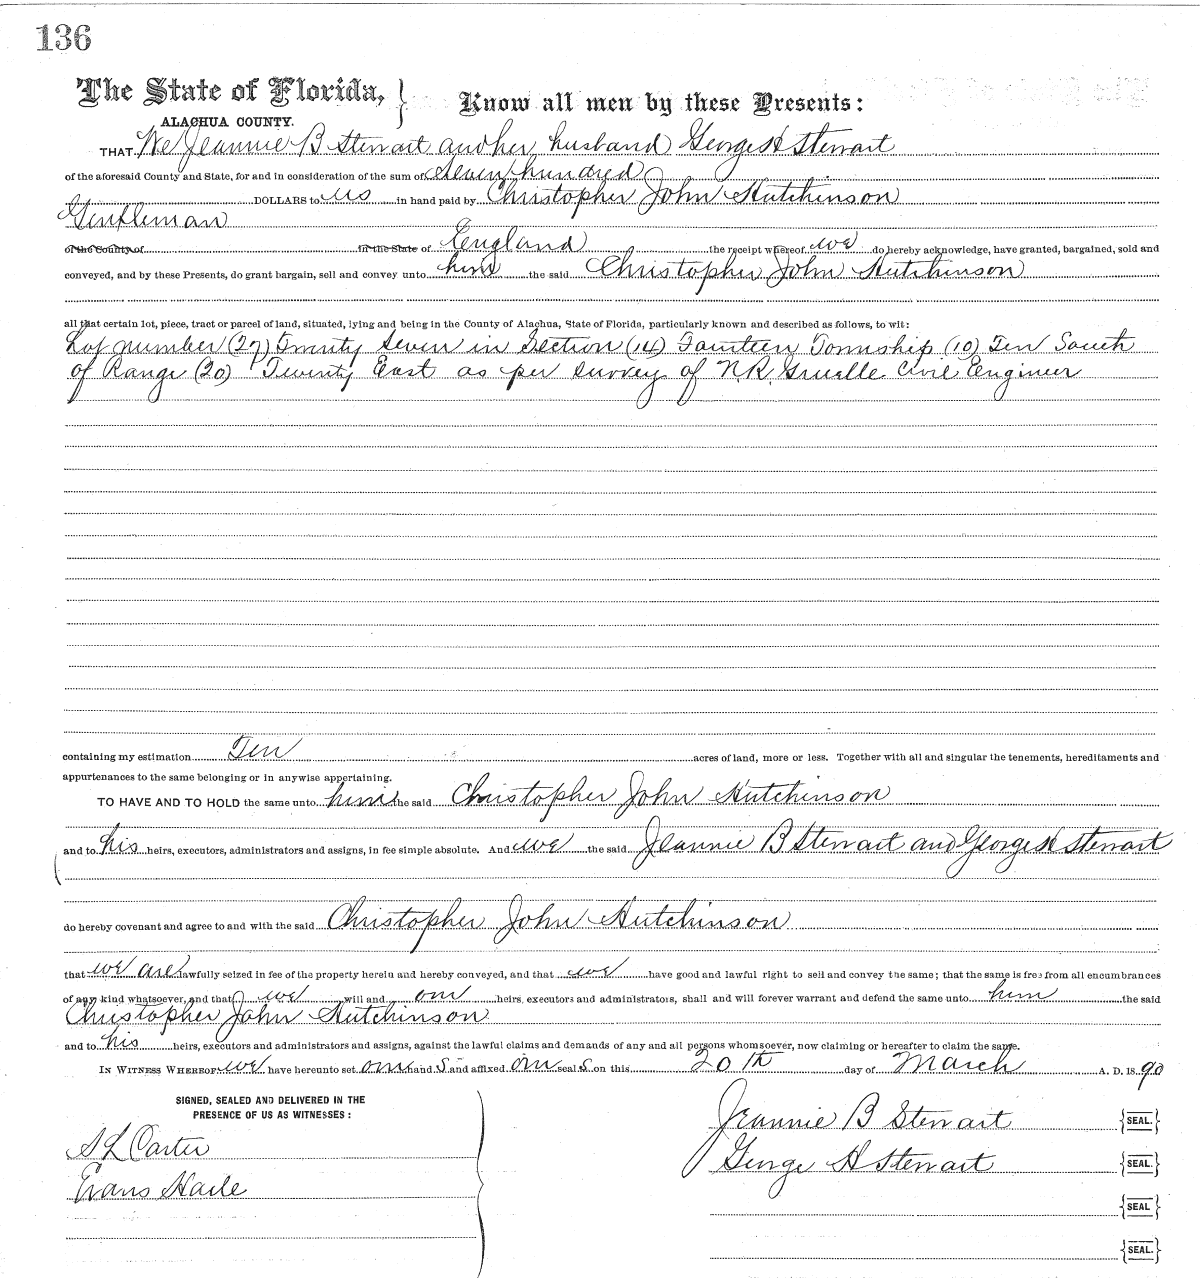 136
The State of Florida, } Know all men by these Presents:
ALACHUA COUNTY.
THAT We Jeannie B Stewart and her husband George H Stewart
of the aforesaid County and State, for and in consideration of the sum of Seven hundred
DOLLARS to us in hand paid by Christopher John Hutchinson
Gentleman
of the County of in the State of England the receipt whereof we do hereby acknowledge, have granted, bargained, sold and
conveyed, and by these Presents, do grant bargain, sell and convey unto him the said Christopher John Hutchinson
all that certain lot, piece, tract or parcel of land, situated, lying and being in the County of Alachua, State of Florida, particularly known and described as follows, to wit:
Lot number (27) Twenty Seven in Section (14) Fourteen Township (10) Ten South
of Range (20) Twenty East as per survey of N.R. Gruelle Civil Engineer
containing my estimation Ten acres of land, more or less. Together with all and singular the tenements, hereditaments and
appurtenances to the same belonging or in anywise appertaining.
TO HAVE AND TO HOLD the same unto him the said Christopher John Hutchinson
and to his heirs, executors, administrators and assigns, in fee simple absolute. And we the said Jeannie B Stewart and George H Stewart
do hereby covenant and agree to and with the said Christopher John Hutchinson
that we are lawfully seized in fee of the property herein and hereby conveyed, and that we have good and lawful right to sell and convey the same; that the same is free from all encumbrances
of any kind whatsoever, and that we will and our heirs, executors and administrators, shall and will forever warrant and defend the same unto him the said
Christopher John Hutchinson
and to his heirs, executors and administrators and assigns, against the lawful claims and demands of any and all persons whomsoever, now claiming or hereafter to claim the same.
IN WITNESS WHEREOF we have hereunto set our hand s and affixed our seal s on this 20th day of March A. D. 18 90
SIGNED, SEALED AND DELIVERED IN THE
PRESENCE OF US AS WITNESSES:
Jeannie B Stewart {SEAL.}
S L Carter
George H Stewart {SEAL.}
Evans Haile
{SEAL}
{SEAL.}